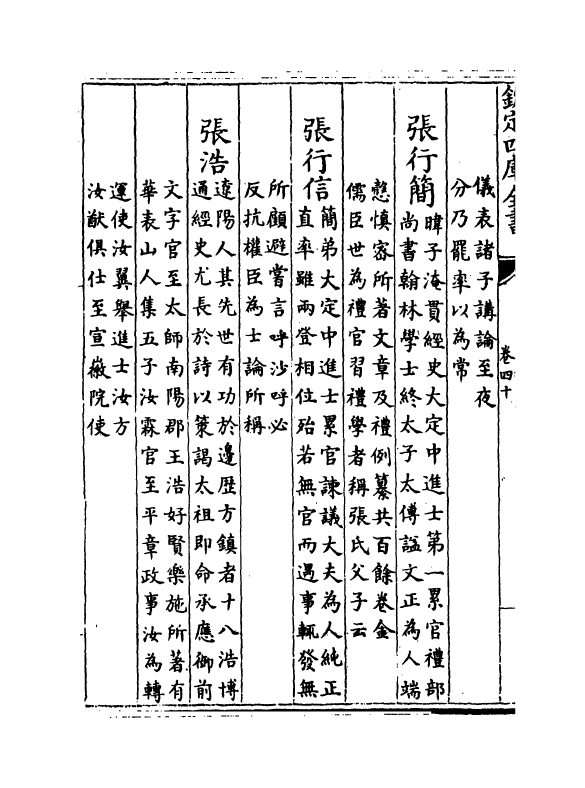 欽定四庫全書
卷四十
儀表諸子講論至夜
分乃罷率以為常
張行簡
暐子淹貫經史大定中進士第一累官禮部
尚書翰林學士終太子太傅諡文正為人端
慤慎宻所著文章及禮例纂共百餘卷金
儒臣世為禮官習禮學者稱張氏父子云
張行信
簡弟大定中進士累官諫議大夫為人純正
直率雖兩登相位殆若無官而遇事輒發無
所顧避嘗言呼沙呼必
反抗權臣為士論所稱
張浩
遼陽人其先世有功於邊歴方鎮者十八浩博
通經史尤長於詩以策謁太祖即命承應御前
文字官至太師南陽郡王浩好賢樂施所著有
華表山人集五子汝霖官至平章政事汝為轉
運使汝翼舉進士汝方
汝猷俱仕至宣徽院使